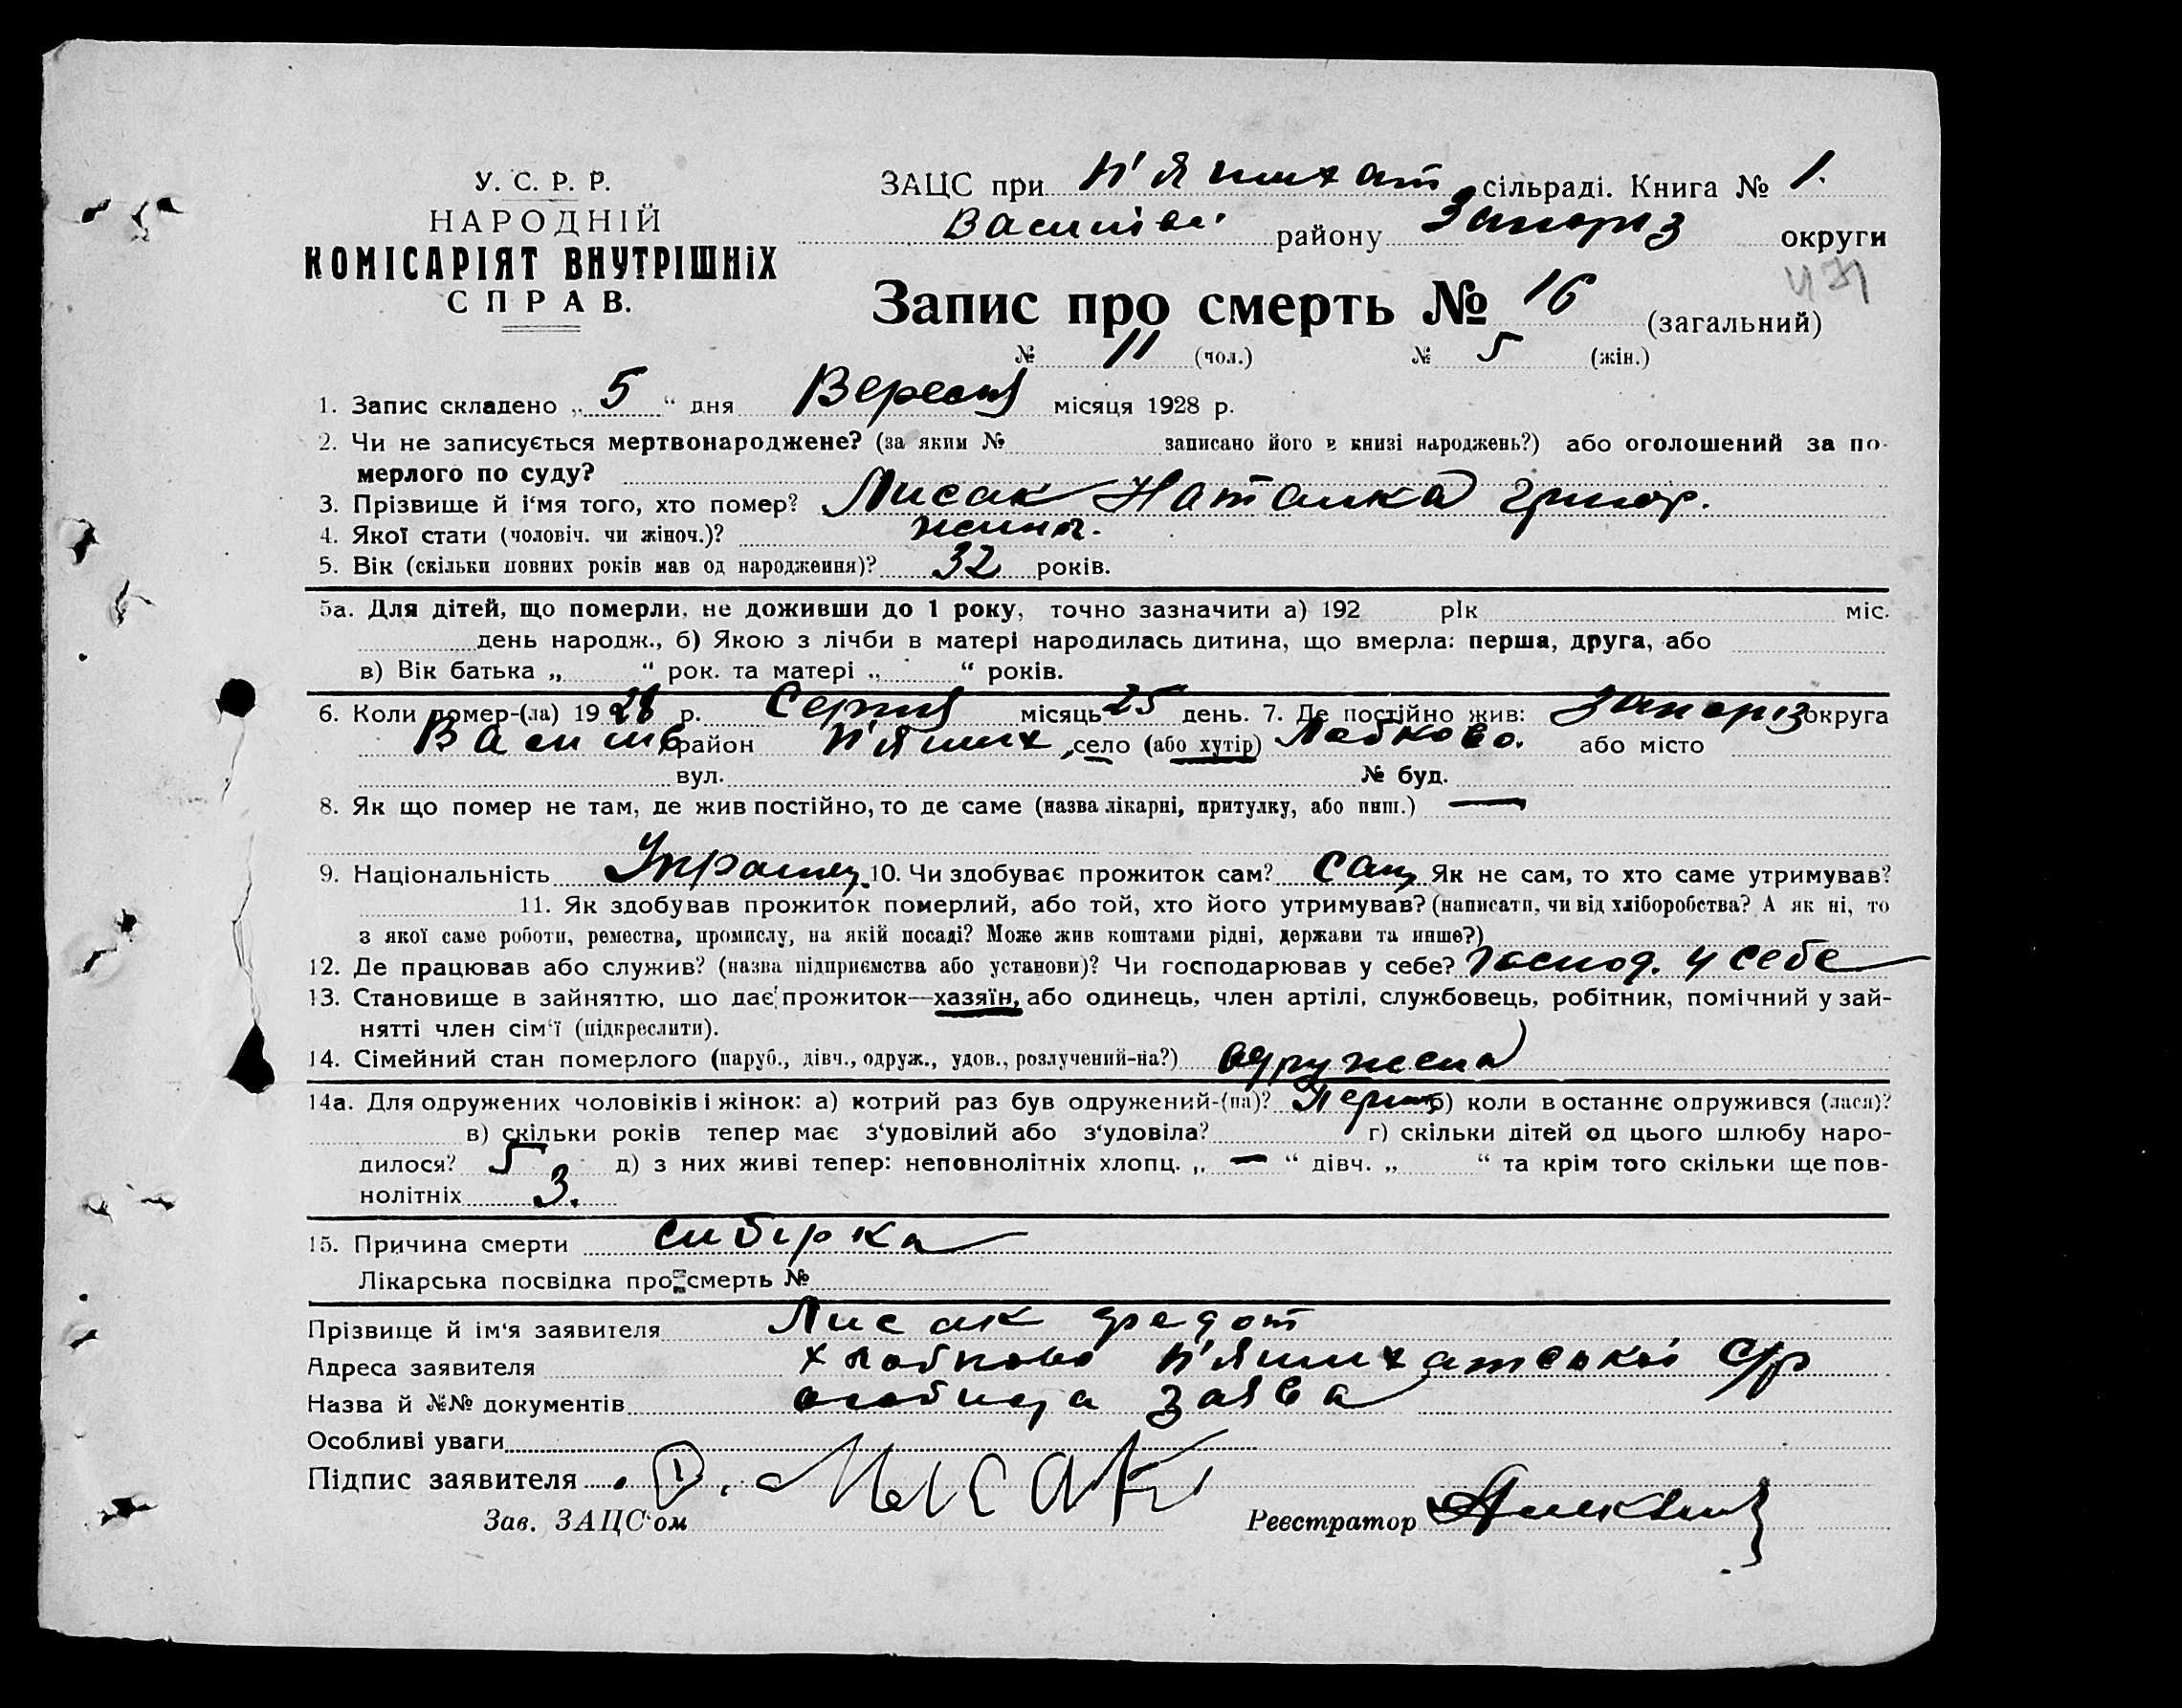 У. С. Р. Р.
НАРОДНІЙ
КОМІСАРІЯТ ВНУТРІШНіХ
СПРАВ.
ЗАЦС при П'ятихат сільраді. Книга № 1.
Василів району Запоріз округи
Запис про смерть № 16 (загальний)
№ 11 (чол.) № 5 (жін.)
1. Запис складено „ 5 “ дня Вересня місяця 1928 р.
2. Чи не записується мертвонароджене? (за яким № записано його в книзі народжень?) або оголошений за по-
мерлого по суду?
3. Прізвище й і'мя того, хто помер? Лисак Наталка Григор.
4. Якої стати (чоловіч. чи жіноч.)? жіноч.
5. Вік (скільки повних років мав од народження)? 32 років.
5а. Для дітей, що померли, не доживши до 1 року, точно зазначити а) 192 рік міс.
день народж., б) Якою з лічби в матері народилась дитина, що вмерла: перша, друга, або
в) Вік батька „ “ рок. та матері „ “ років.
6. Коли помер-(ла) 1928 р. Серпня місяць 25 день. 7. Де постійно жив: Запоріз округа
Василів район П'ятих село (або хутір) Лобково. або місто
вул. № буд.
8. Як що помер не там, де жив постійно, то де саме (назва лікарні, притулку, або инш.) —
9. Національність 10. Чи здобуває прожиток сам? сам Як не сам, то хто саме утримував?
11. Як здобував прожиток померлий, або той, хто його утримував? (написати, чи від хліборобства? А як ні, то
з якої саме роботи, ремества, промислу, на якій посаді? Може жив коштами рідні, держави та инше?)
12. Де працював або служив? (назва підприємства або установи)? Чи господарював у себе? Господ. у себе
13. Становище в зайняттю, що дає прожиток—хазяїн, або одинець, член артілі, службовець, робітник, помічний у зай-
нятті член сім'ї (підкреслити).
14. Сімейний стан померлого (паруб., дівч., одруж., удов., розлучений-на?) одружена
14а. Для одружених чоловіків і жінок: а) котрий раз був одружений-(на)? Перш б) коли востаннє одружився (лася)?
в) скільки років тепер має з'удовілий або з'удовіла? г) скільки дітей од цього шлюбу наро-
дилося? 5 д) з них живі тепер: неповнолітніх хлопц. „ — “ дівч. „ “ та крім того скільки ще пов-
нолітніх 3.
15. Причина смерти сибірка
Лікарська посвідка про смерть №
Прізвище й ім'я заявителя Лисак Федот
Адреса заявителя х Лобково П'ятихатської с/р
Назва й №№ документів особиста заява
Особливі уваги
Підпис заявителя Лисак
Зав. ЗАЦС'ом Реєстратор